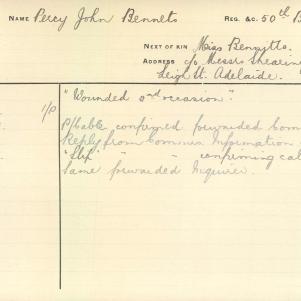 NAME Percy John Bennets REG. &C. 50th B
NEXT OF KIN Miss Bennetts.
ADDRESS c/o Messrs Shearing
Leigh St. Adelaide.
1/P "Wounded 2nd occasion".
P/Cable confirmed forwarded Com
Reply from Commns Information
" " confirming cal
Same forwarded Inquirer.